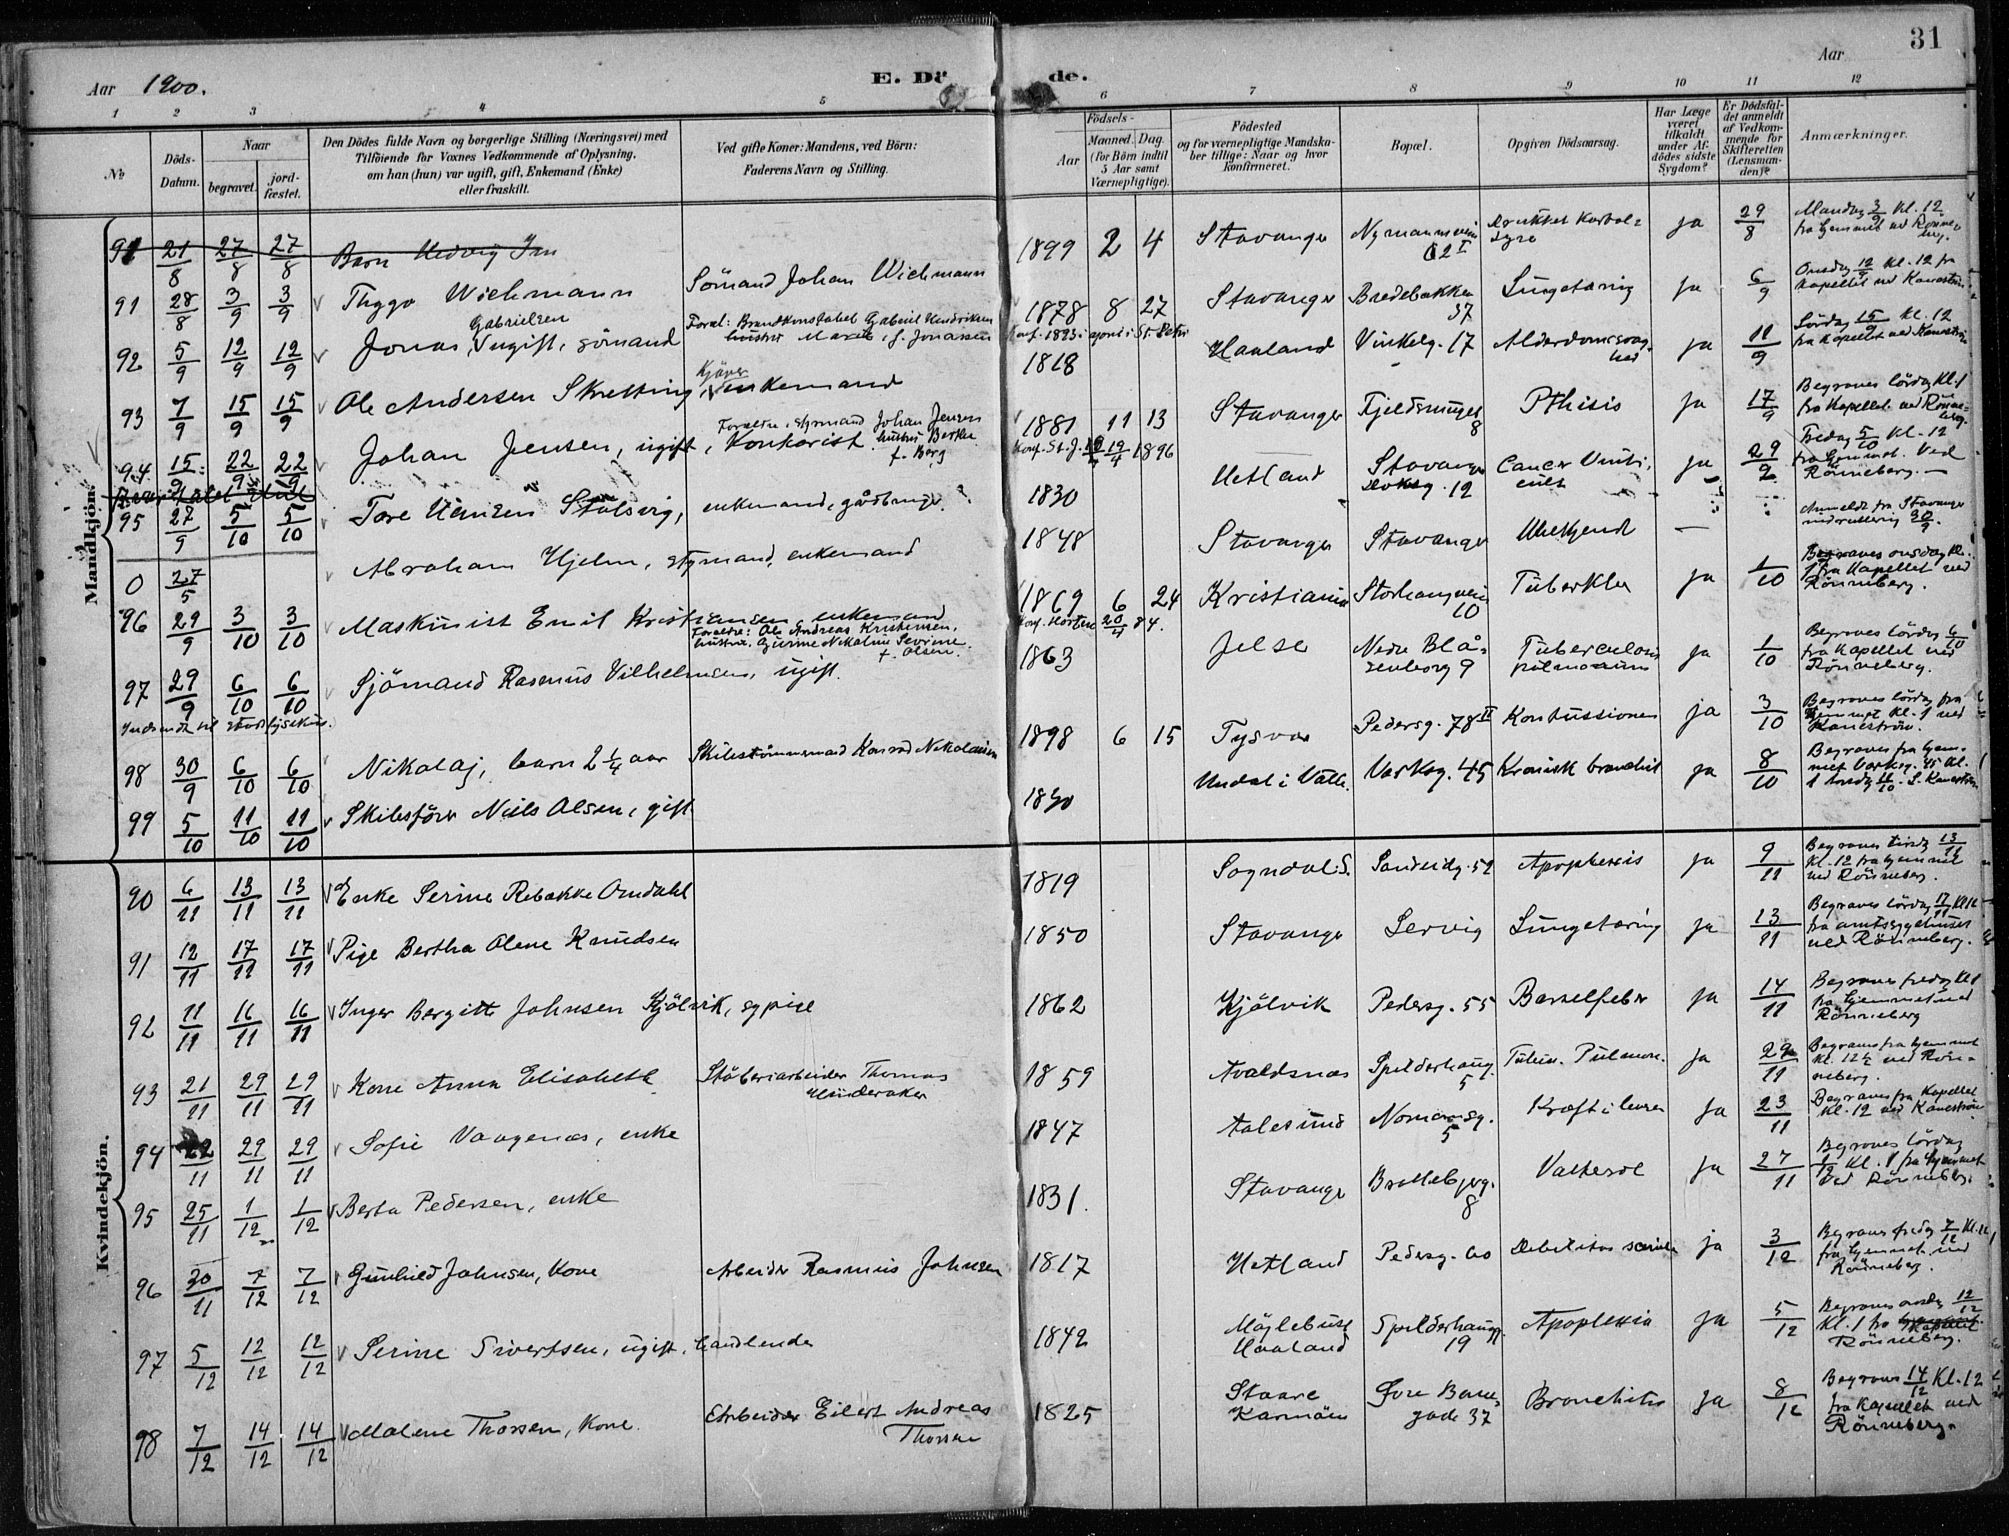 31
Aar 1900.
E. Dö de.
Aar
1 2 3 4 5 6 7 8 9 10 11 12
No
Döds-Datum.
Naar
begravet.
jord-fæstet.
Den Dödes fulde Navn og borgerlige Stilling (Næringsvei) med
Tilföiende for Voxnes Vedkommende af Oplysning,
om han (hun) var ugift, gift, Enkemand (Enke)
eller fraskilt.
Ved gifte Koner: Mandens, ved Börn:
Faderens Navn og Stilling.
Födsels-
Aar
Maaned. Dag.
(for Börn indtil
5 Aar samt
Værnepligtige).
Födested
og for værnepligtige Mandska-
ber tillige: Naar og hvor
konfirmeret.
Bopæl.
Opgiven Dödsaarsag.
Har Læge
været
tilkaldt
under Af-
dödes sidste
Sygdom?
Er Dödsfal-
det anmeldt
af Vedkom-
mende for
Skifteretten
(Lensman-
den)?
Anmærkninger.
Mandkjön.
91 21/8 27/8 27/8 Barn Hedvig
91 28/8 3/9 3/9 Thygo Wichmann Sömand Johan Wichmann 1899 2 4 Stavanger 62 I Drukket Karbol-syre ja 29/8 Mandag 3/9 Kl. 12 fra hjemmet ved Rönneberg.
92 5/9 12/9 12/9 Jonas Gabrielsen, ugift, sömand Foræl: Brandkonstabel Gabriel Hendriksen hustru Maret f. Jonassen 1878 8 27 Konf. 1893 i april i St. Petri Stavanger Bredebakken 37 Lungetæring ja 6/9 Onsdag 12/9 Kl. 12 fra kapellet ved Kaneström
93 7/9 15/9 15/9 Ole Andersen Skretting, Kjöper enkemand 1818 Haaland Vinkelg. 17 Alderdomssvaghed ja 11/9 Lördag 15/9 Kl. 12 fra Kapellet ved Kaneström
94 15/9 22/9 22/9 Johan Jensen, ugift, Kontorist. Forældre: styrmand Johan Jensen hustru Berthe f. Berg 1881 11 13 Konf. St. J. 19/4 1896 Stavanger Fjeldsmuget 8 Pthisis ja 17/9 Begraves lördag Kl. 1 fra Kapellet ved Rönneberg.
95 27/9 5/10 5/10 Tore Hansen Stølsvig, enkemand, gårdbruger 1830 Hetland Stavanger 12 Cancer Ventriculi ja 29/9 Fredag 5/10 Kl. 12 fra hjemmet. Ved Rönneberg.
0 27/5 Abraham Hjelm, styrmand, enkemand 1848 Stavanger Stavanger Ubekjendt — Anmeldt fra Stavanger 20/9.
96 29/9 3/10 3/10 Maskinist Emil Kristiansen, enkemand Forældre: Ole Andreas Kristensen, hustru Gurine Nikoline Severine f. Olsen. 1869 6 24 Konf. Horten 20/4 84. Kristiania Storhaugveien 10 Tuberkler ja 1/10 Begraves onsdag Kl. 1 fra Kapellet ved Rönneberg.
97 29/9 6/10 6/10 Sjömand Rasmus Vilhelmsen, ugift. 1863 Jelse Nedre Blåsenborg 9 Tuberculosis pulmonum ja 1/10 Begraves lördag 6/10 fra Kapellet ved Rönneberg.
98 30/9 6/10 6/10 Nikolaj, barn 2 1/4 aar Skibstömmermand Konrad Nikolaisen 1898 6 15 Tysvær Pedersg. 78 II Kontussionen ja 3/10 Begraves lördag fra hjemmet Kl. 1 ved Kaneström.
99 5/10 11/10 11/10 Skibsförer Niels Olsen, gift 1830 Undal i Valle. Varksg. 45 Kronisk bronchit ja 8/10 Begraves fra hjemmet Varksg. 45 Kl. 1 torsdag 11/10.
Kvindekjön.
90 6/11 13/11 13/11 Enke Serine Rebekke Omdahl 1819 Sogndal. S. Sandeidg. 52 Apoplexis ja 9/11 Begraves tirsdag 13/11 Kl. 12 fra hjemmet ved Rönneberg.
91 12/11 17/11 17/11 Pige Bertha Olene Knudsen 1850 Stavanger Servig Lungetæring ja 13/11 Begraves lördag 17/11 fra amtssygehuset ved Rönneberg.
92 11/11 16/11 16/11 Inger Bergitt Johnsen Kjölvik, sypige 1862 Kjölvik Pedersg. 55 Barselfeber ja 14/11 Begraves fredag Kl. 1 fra hjemmet ved Rönneberg
93 21/11 29/11 29/11 Kone Anna Elisabeth Stöberiarbeider Thomas 1859 Avaldsnæs Spilderhaug. 5 Tuberc. Pulmon. ja 29/11 Begraves fra hjemmet Kl. 12 1/2 ved Rönneberg.
94 22/11 29/11 29/11 Sofie Vaagenæs, enke 1847 Aalesund 5 Kræft i leveren ja 23/11 Begraves fra Kapellet Kl. 12 ved Kaneström
95 25/11 1/12 1/12 Berta Pedersen, enke 1831. Stavanger 8 Vattersot ja 27/11 Begraves lördag 1/12 Kl. 1 fra hjemmet ved Rönneberg.
96 30/11 7/12 7/12 Gunhild Johnsen, Kone Arbeider Rasmus Johnsen 1817 Hetland Pedersg. Debilitas senilis ja 3/12 Begraves fredag 7/12 fra hjemmet ved Rönneberg.
97 5/12 12/12 12/12 Serine Sivertsen, ugift, handlende 1842 Haaland Spilderhaugg. 19 Apoplexia ja 5/12 Begraves onsdag 12/12 Kl. 1 fra Kapellet Rönneberg.
98 7/12 14/12 14/12 Malene Thorsen, Kone. Arbeider Eilert Andreas Thorsen 1825 Karmöen 37 Bronchitis ja 8/12 Begraves 14/12 Kl. 12 fra Kapellet ved Rönneberg.